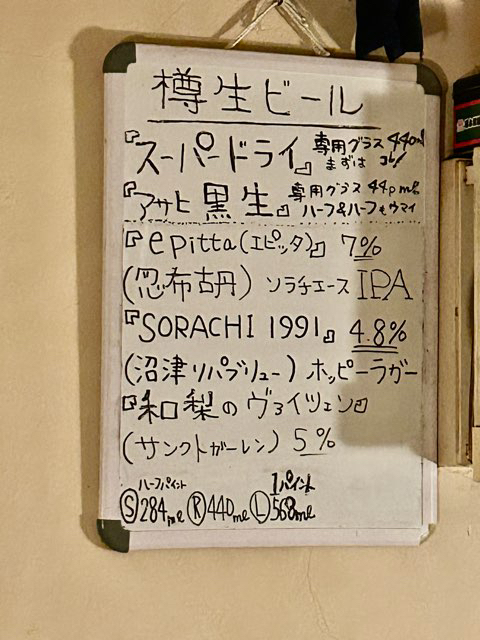 樽生ビール
『スーパードライ』 専用グラス 440ml
まずは コレ!
『アサヒ 黒生』 専用グラス 440ml
ハーフ&ハーフもウマイ
『epitta(エピッタ)』 7%
(忍布古丹) ソラチエース IPA
『SORACHI 1991』 4.8%
(沼津リパブリュー) ホッピーラガー
『和梨のヴァイツェン』
(サンクトガーレン) 5%
ハーフパイント 1パイント
Ⓢ284ml Ⓡ440ml Ⓛ568ml